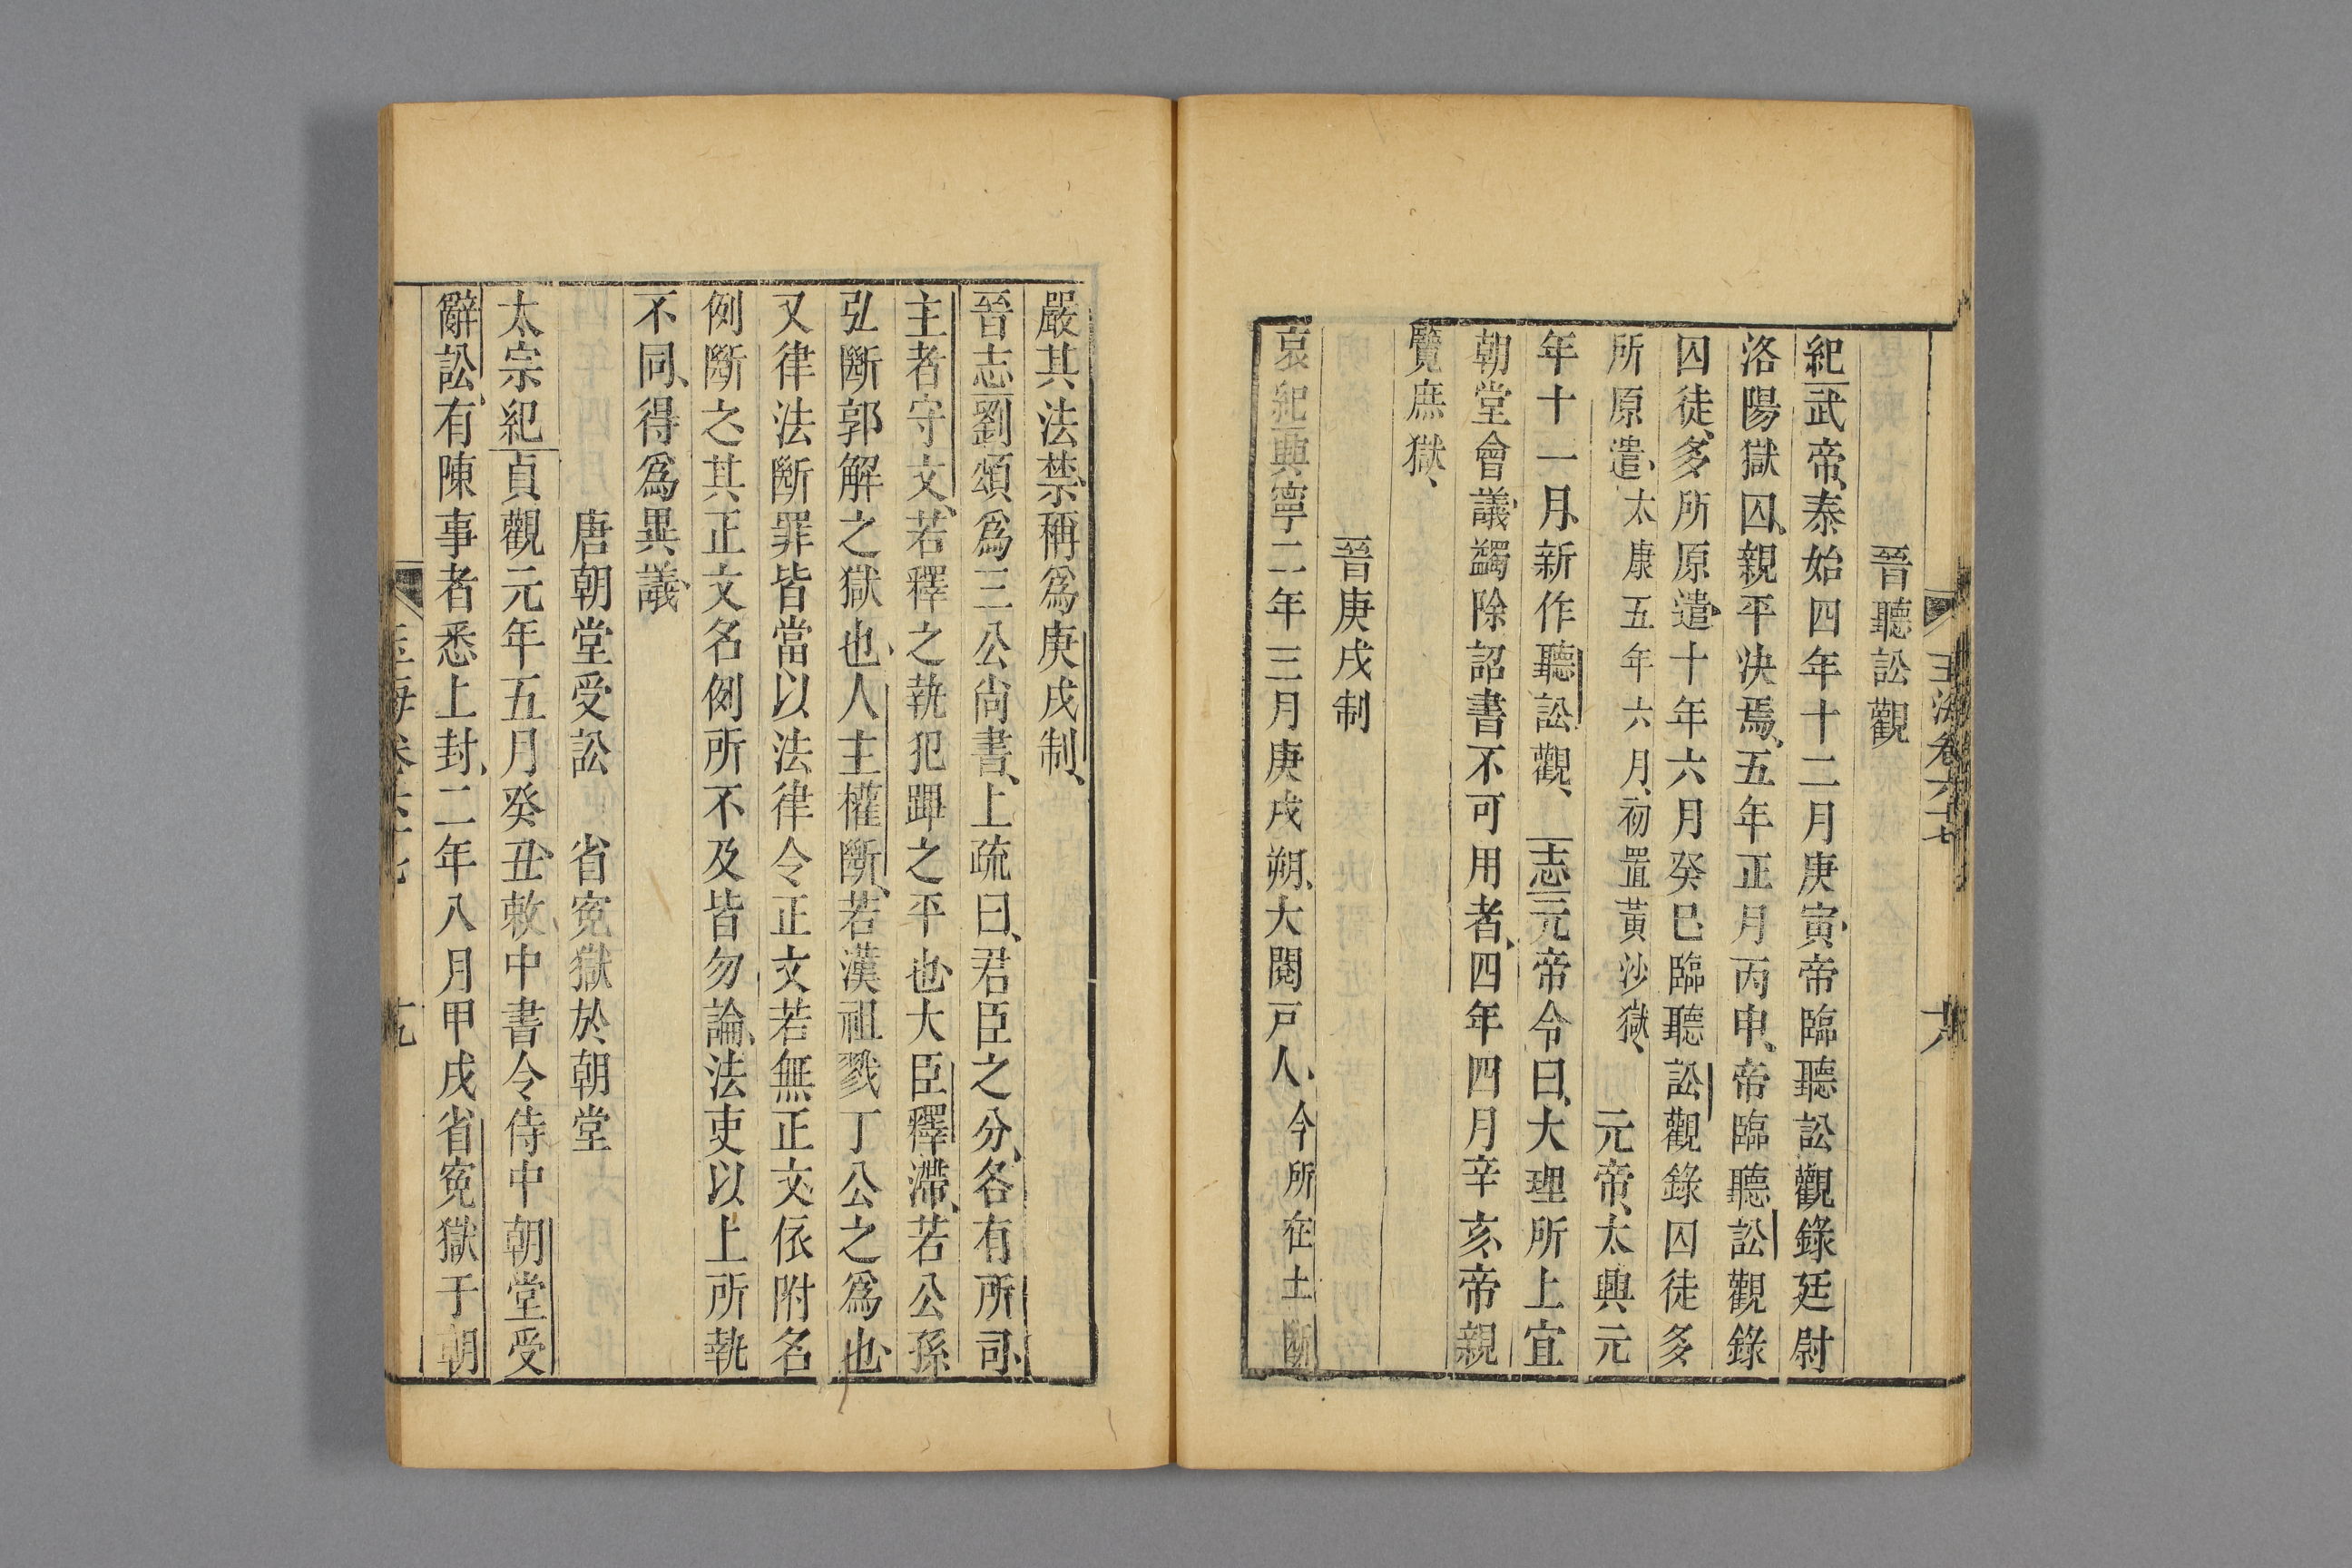 玉海卷六十七
十八
晉聽訟觀
紀武帝泰始四年十二月庚寅帝臨聽訟觀錄廷尉
洛陽獄囚親平决焉五年正月丙申帝臨聽訟觀錄
囚徒多所原遣十年六月癸巳臨聽訟觀錄囚徒多
所原遣太康五年六月初置黃沙獄 元帝太興元
年十一月新作聽訟觀 志元帝令曰大理所上宜
朝堂會議蠲除詔書不可用者四年四月辛亥帝親
覽庶獄
晉庚戌制
哀紀興寧二年三月庚戌朔大閱戸人今所在土斷
嚴其法禁稱爲庚戌制
晉志劉頌爲三公尚書上疏曰君臣之分各有所司
主者守文若釋之執犯蹕之平也大臣釋滯若公孫
弘斷郭解之獄也人主權斷若漢祖戮丁公之爲也
又律法斷罪皆當以法律令正文若無正文依附名
例斷之其正文名例所不及皆勿論法吏以上所執
不同得爲異議
唐朝堂受訟 省寃獄於朝堂
太宗紀貞觀元年五月癸丑敕中書令侍中朝堂受
辭訟有陳事者悉上封二年八月甲戌省寃獄于朝